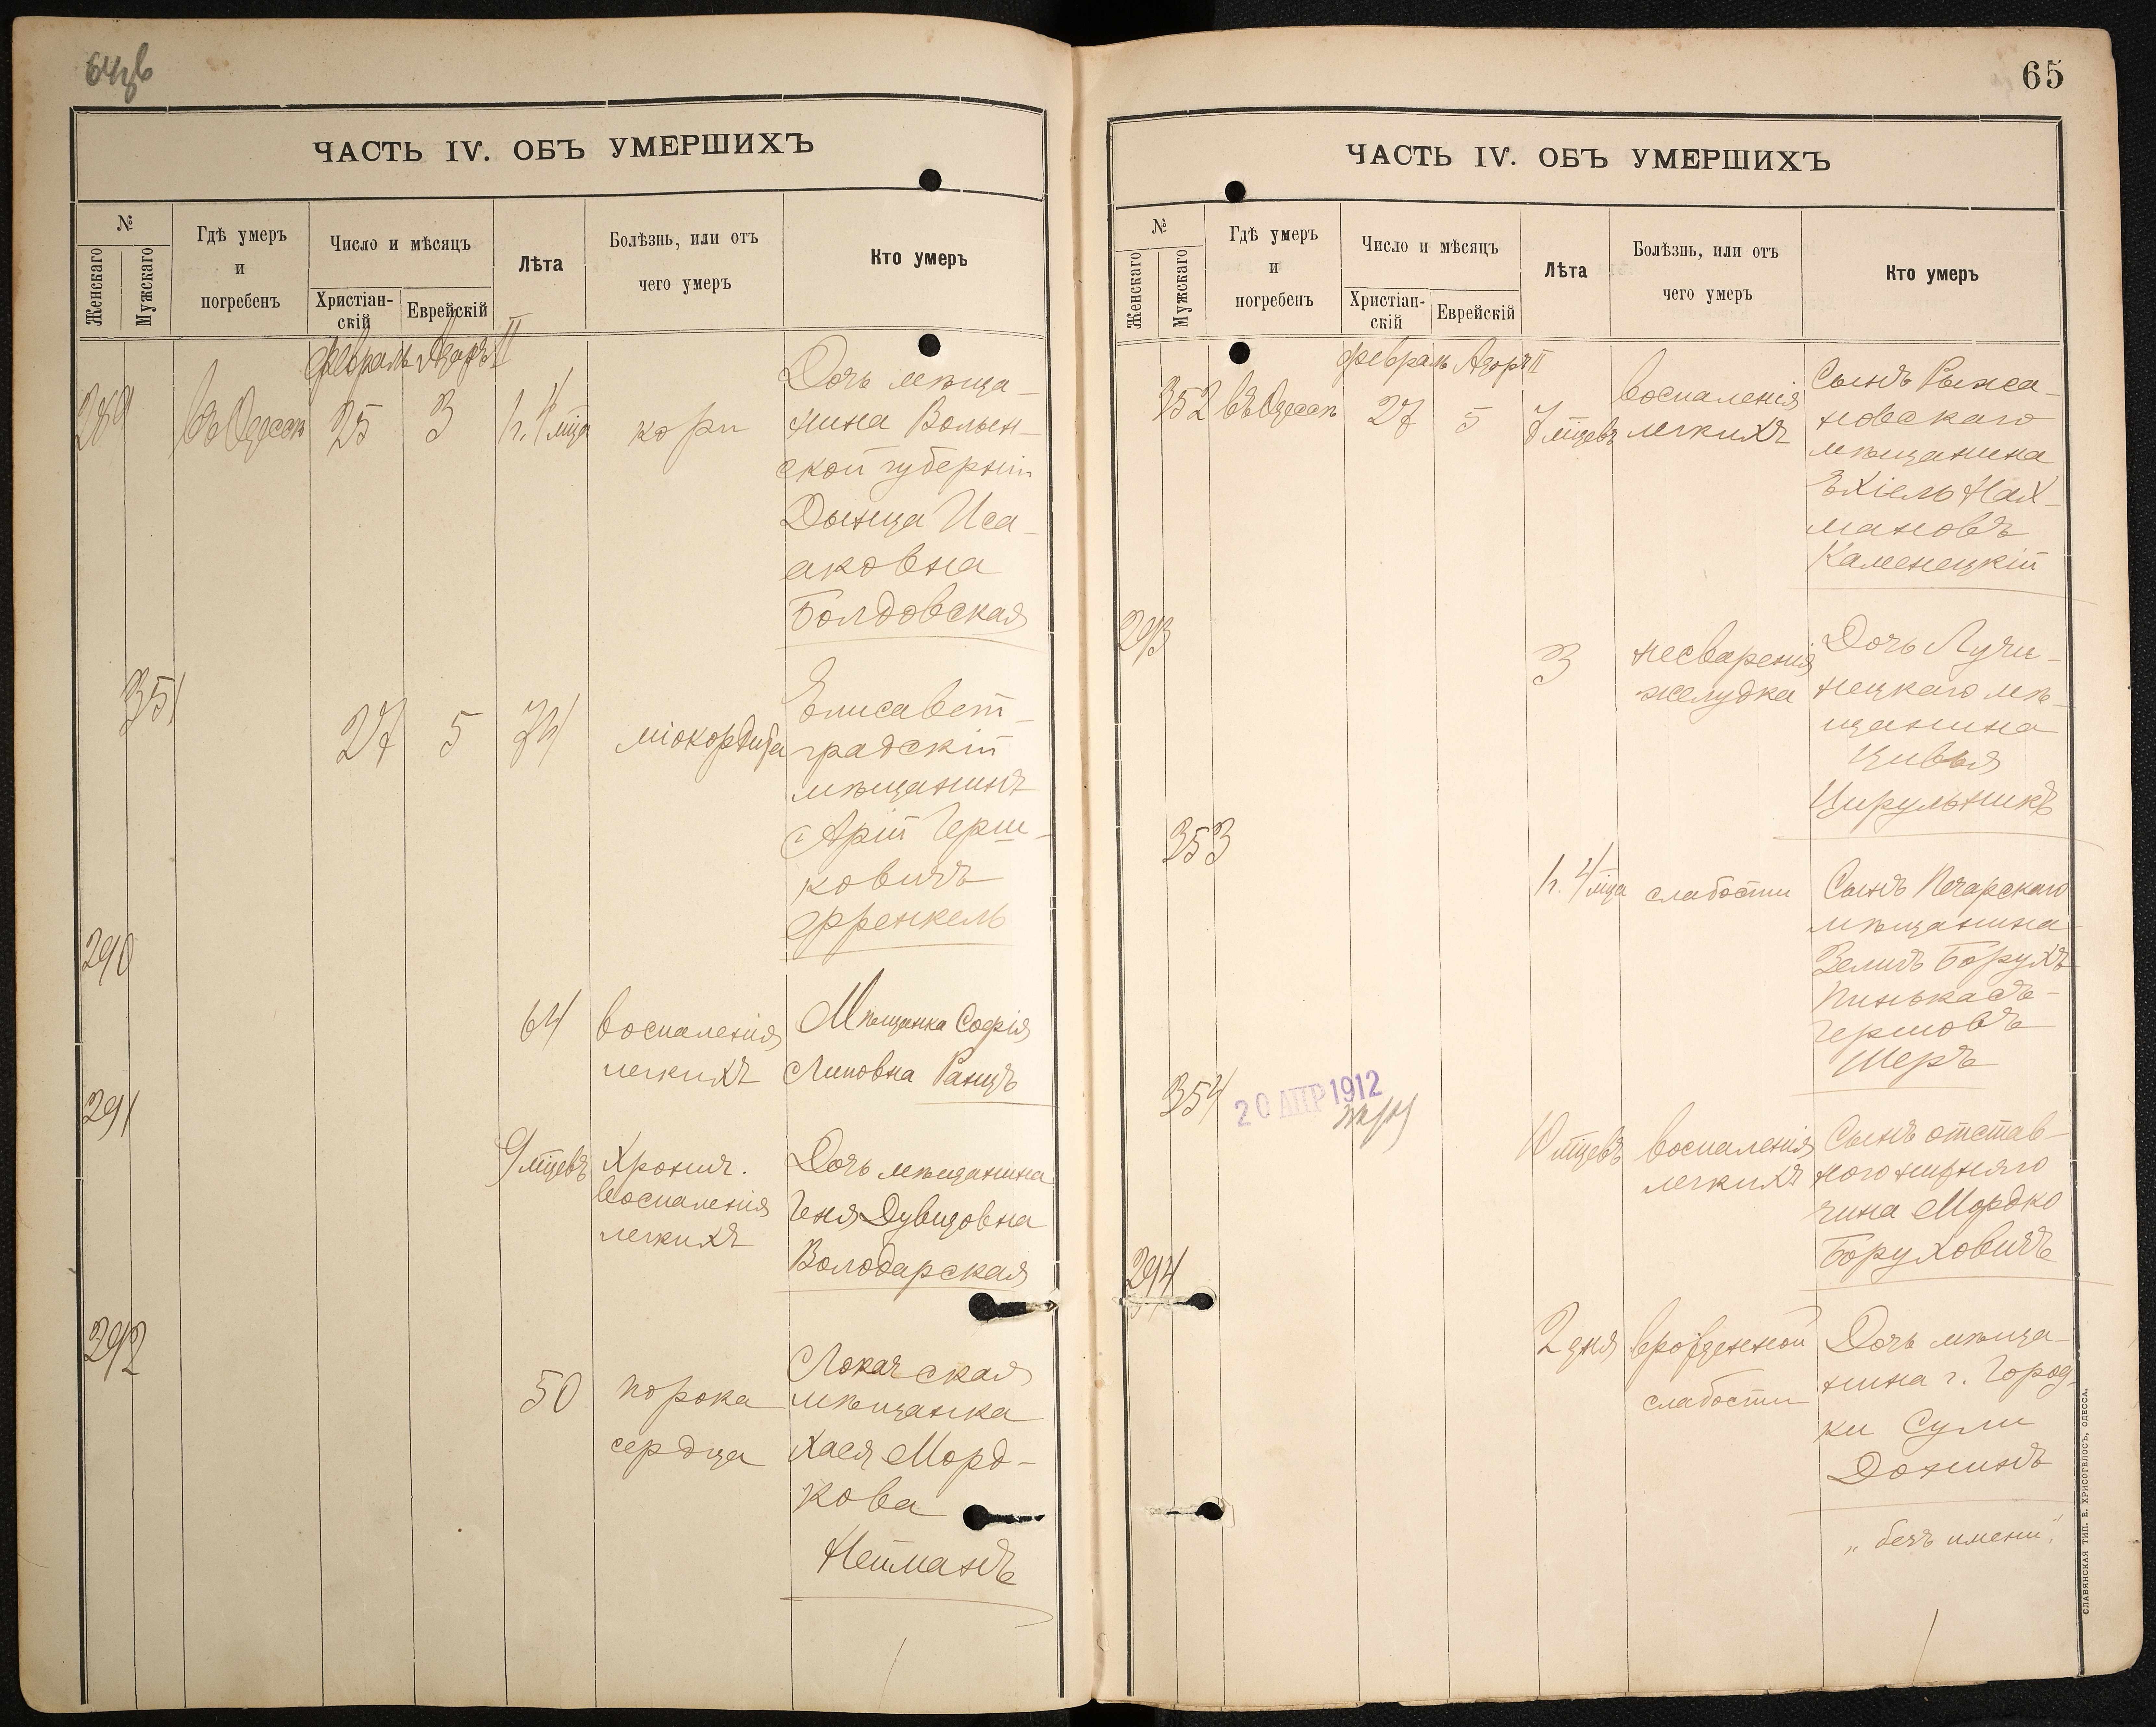 ЧАСТЬ IV. ОБЪ УМЕРШИХЪ
№
Женскаго
Мужскаго
Гдѣ умеръ
и
погребенъ
Число и мѣсяцъ
Христіан-
скій
Еврейскій
Лѣта
Болѣзнь, или отъ
чего умеръ
Кто умеръ
февраль Адаръ II
289 въ Одессѣ 25 3 1 г. 4 мца кори
Дочь мѣща-
нина Волын-
ской губерніи
Дынца Иса-
аковна
Болдовская
351 27 5 74 міокордита
Елисавет-
градскій
мѣщанинъ
Арій Герш-
ковичъ
Френкель
290
64 воспаленія
легкихъ
Мѣщанка Софія
Липовна Ранцъ
291
9 мцевъ Хронич.
воспаленія
легкихъ
Дочь мѣщанина
Геня Дувидовна
Володарская
292
50 порока
сердца
Локачская
мѣщанка
Хася Морд-
кова
Нейманъ
65
ЧАСТЬ IV. ОБЪ УМЕРШИХЪ
№
Женскаго
Мужскаго
Гдѣ умеръ
и
погребенъ
Число и мѣсяцъ
Христіан-
скій
Еврейскій
Лѣта
Болѣзнь, или отъ
чего умеръ
Кто умеръ
февраль Адаръ II
352 въ Одессѣ 27 5 7 мцевъ
воспаленія
легкихъ
Сынъ Рыжа-
новскаго
мѣщанина
Ехіель Нах-
мановъ
Каменецкій
293
3 несваренія
желудка
Дочь Лучи-
нецкаго мѣ-
щанина
Цивья
Цирульникъ
353
1 г. 4 мца слабости
Сынъ Печарскаго
мѣщанина
Зелигъ Борухъ
Пинькасъ-
Гершовъ
Шеръ
354
20 АПР 1912
10 мцевъ воспаленія
легкихъ
Сынъ отстав-
ного нижняго
чина Мордко
Боруховичъ
294
2 дня врожденной
слабости
Дочь мѣща-
нина г. Город-
ки Сули
Донинъ
„безъ имени“.
СЛАВЯНСКАЯ ТИП. Е. ХРИСОГЕЛОСЪ, ОДЕССА.